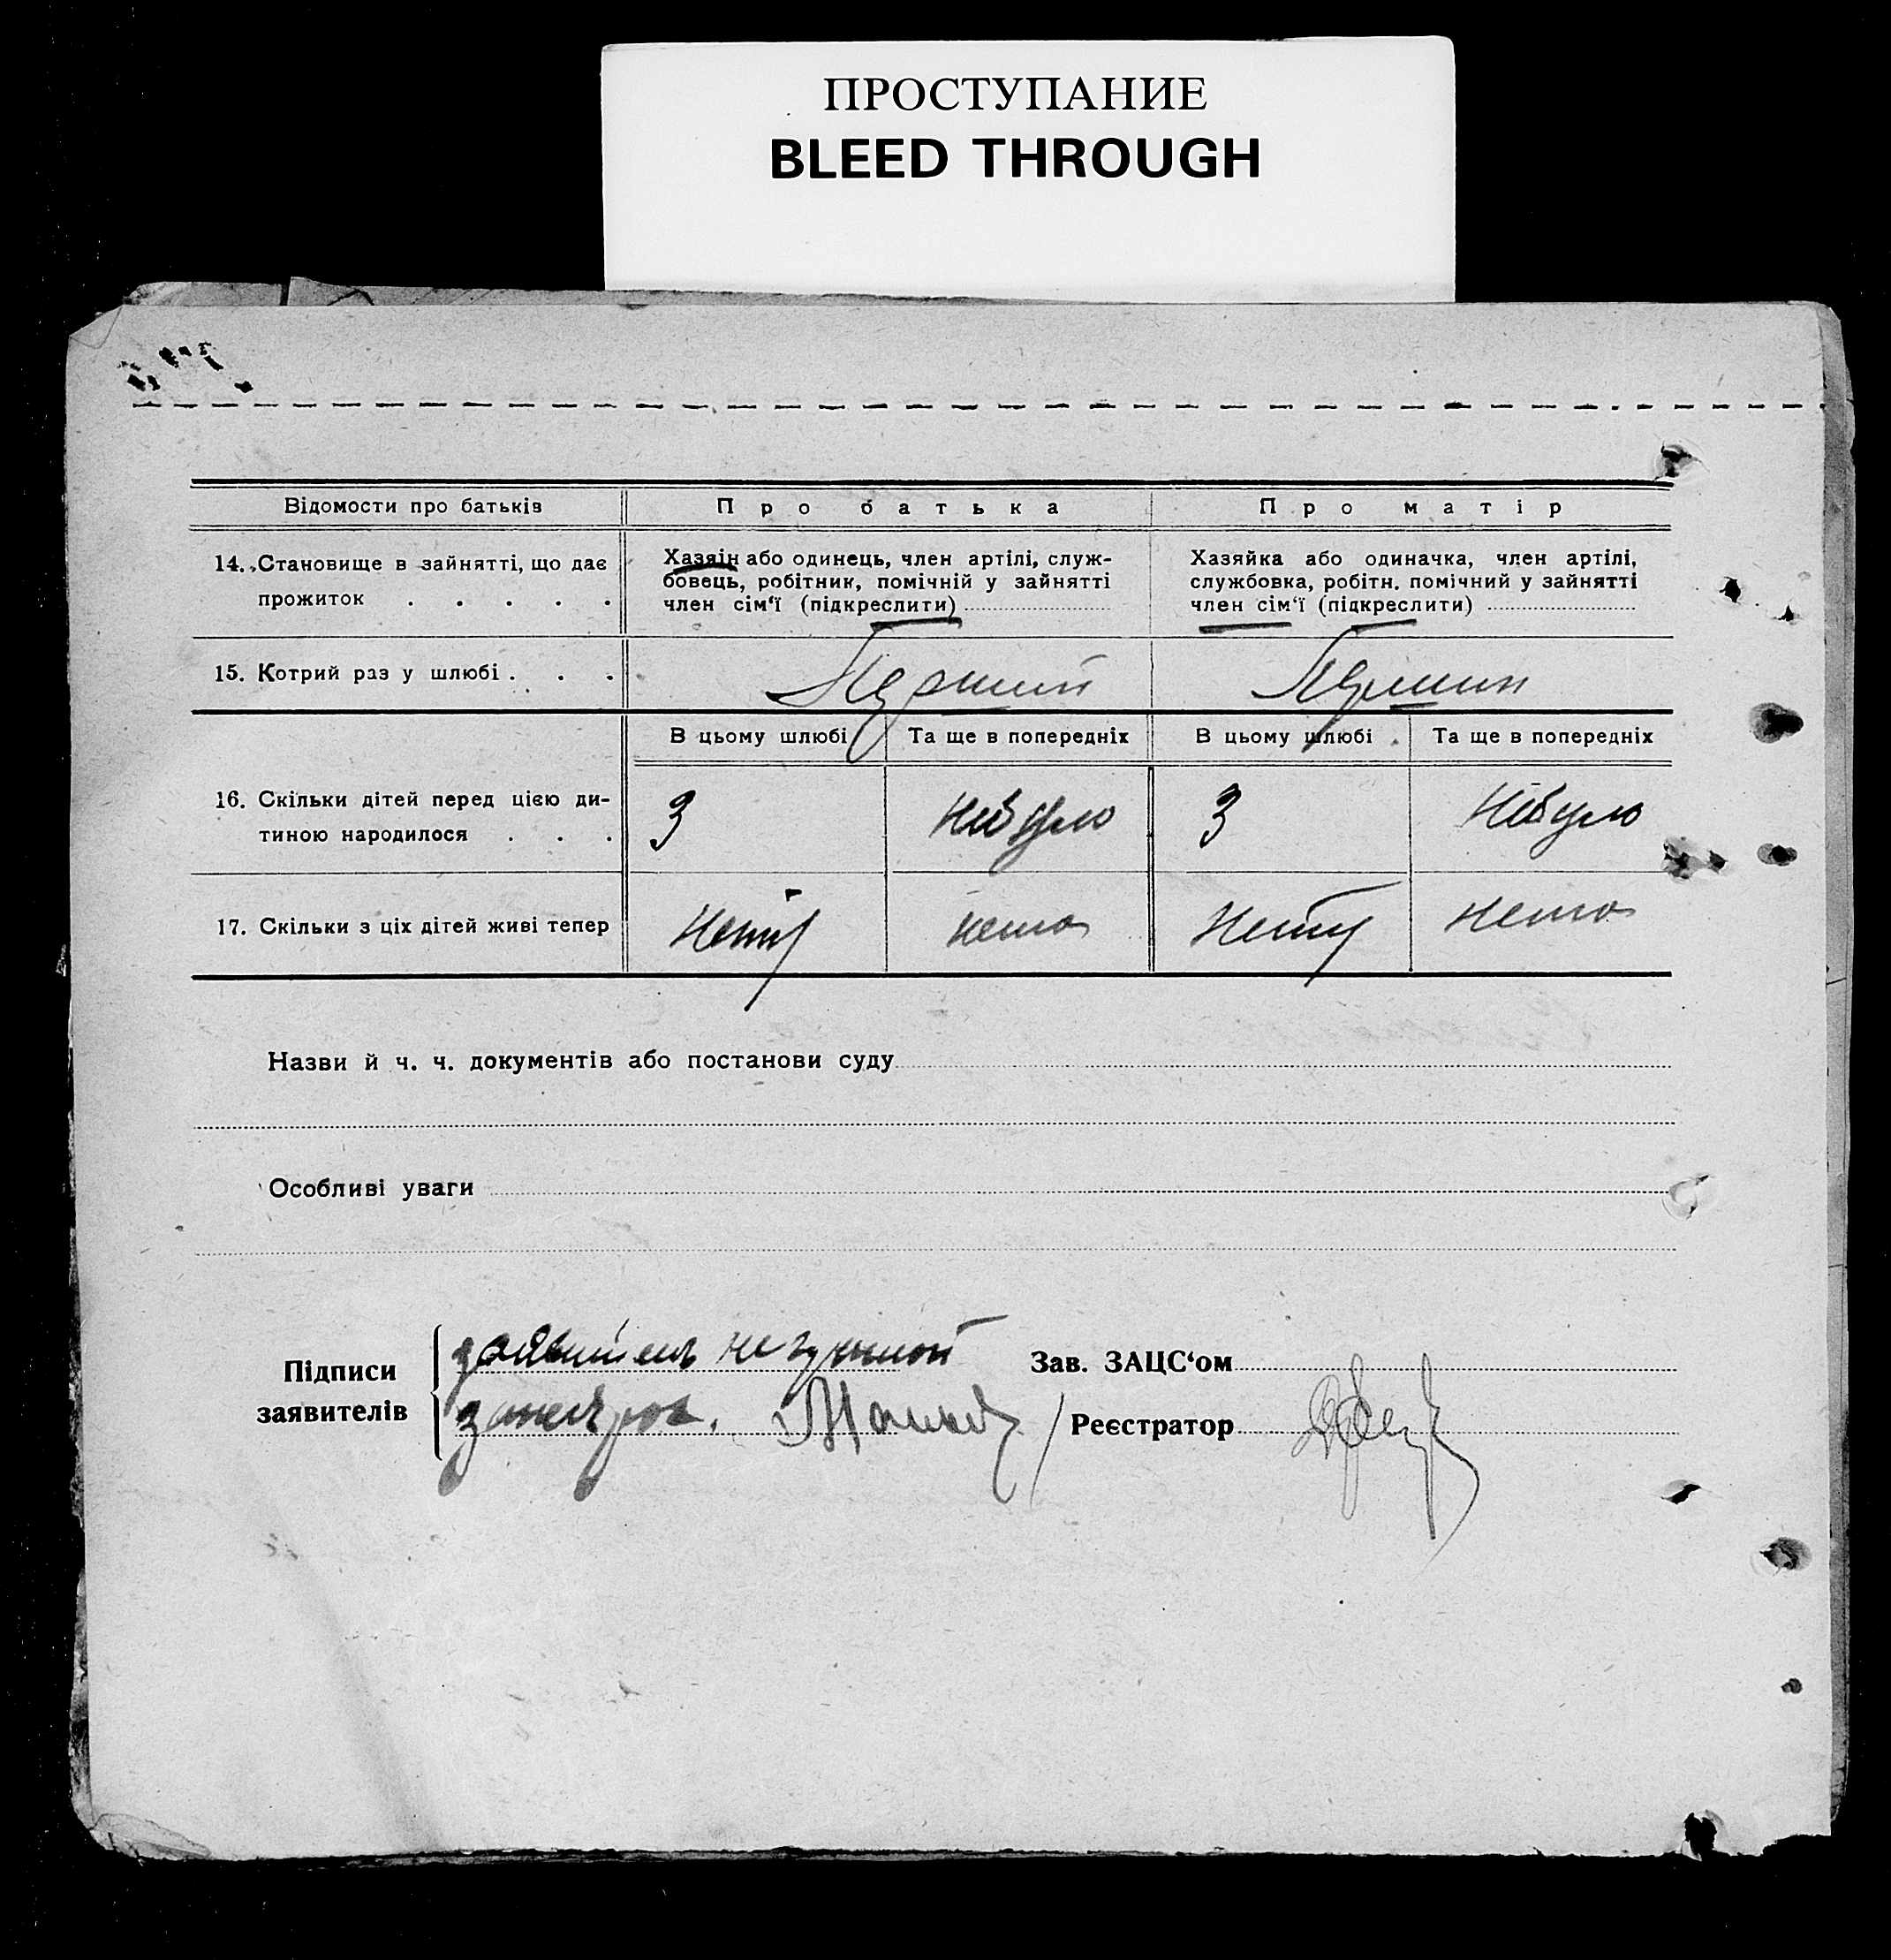 ПРОСТУПАНИЕ
BLEED THROUGH
Відомости про батьків
Про батька
Про матір
14. Становище в зайнятті, що дає
прожиток . . . . .
Хазяїн або одинець, член артілі, служ-
бовець, робітник, помічній у зайнятті
член сім'ї (підкреслити)
Хазяйка або одиначка, член артілі,
службовка, робітн. помічний у зайнятті
член сім'ї (підкреслити)
15. Котрий раз у шлюбі . . .
Перший
Перший
В цьому шлюбі
Та ще в попередніх
В цьому шлюбі
Та ще в попередніх
16. Скільки дітей перед цією ди-
тиною народилося . . .
3
Небуло
3
Небуло
17. Скільки з ціх дітей живі тепер
Нету
нема
Нету
нема
Назви й ч. ч. документів або постанови суду
Особливі уваги
Підписи
заявителів
заявитель не
Зав. ЗАЦС'ом
Реєстратор